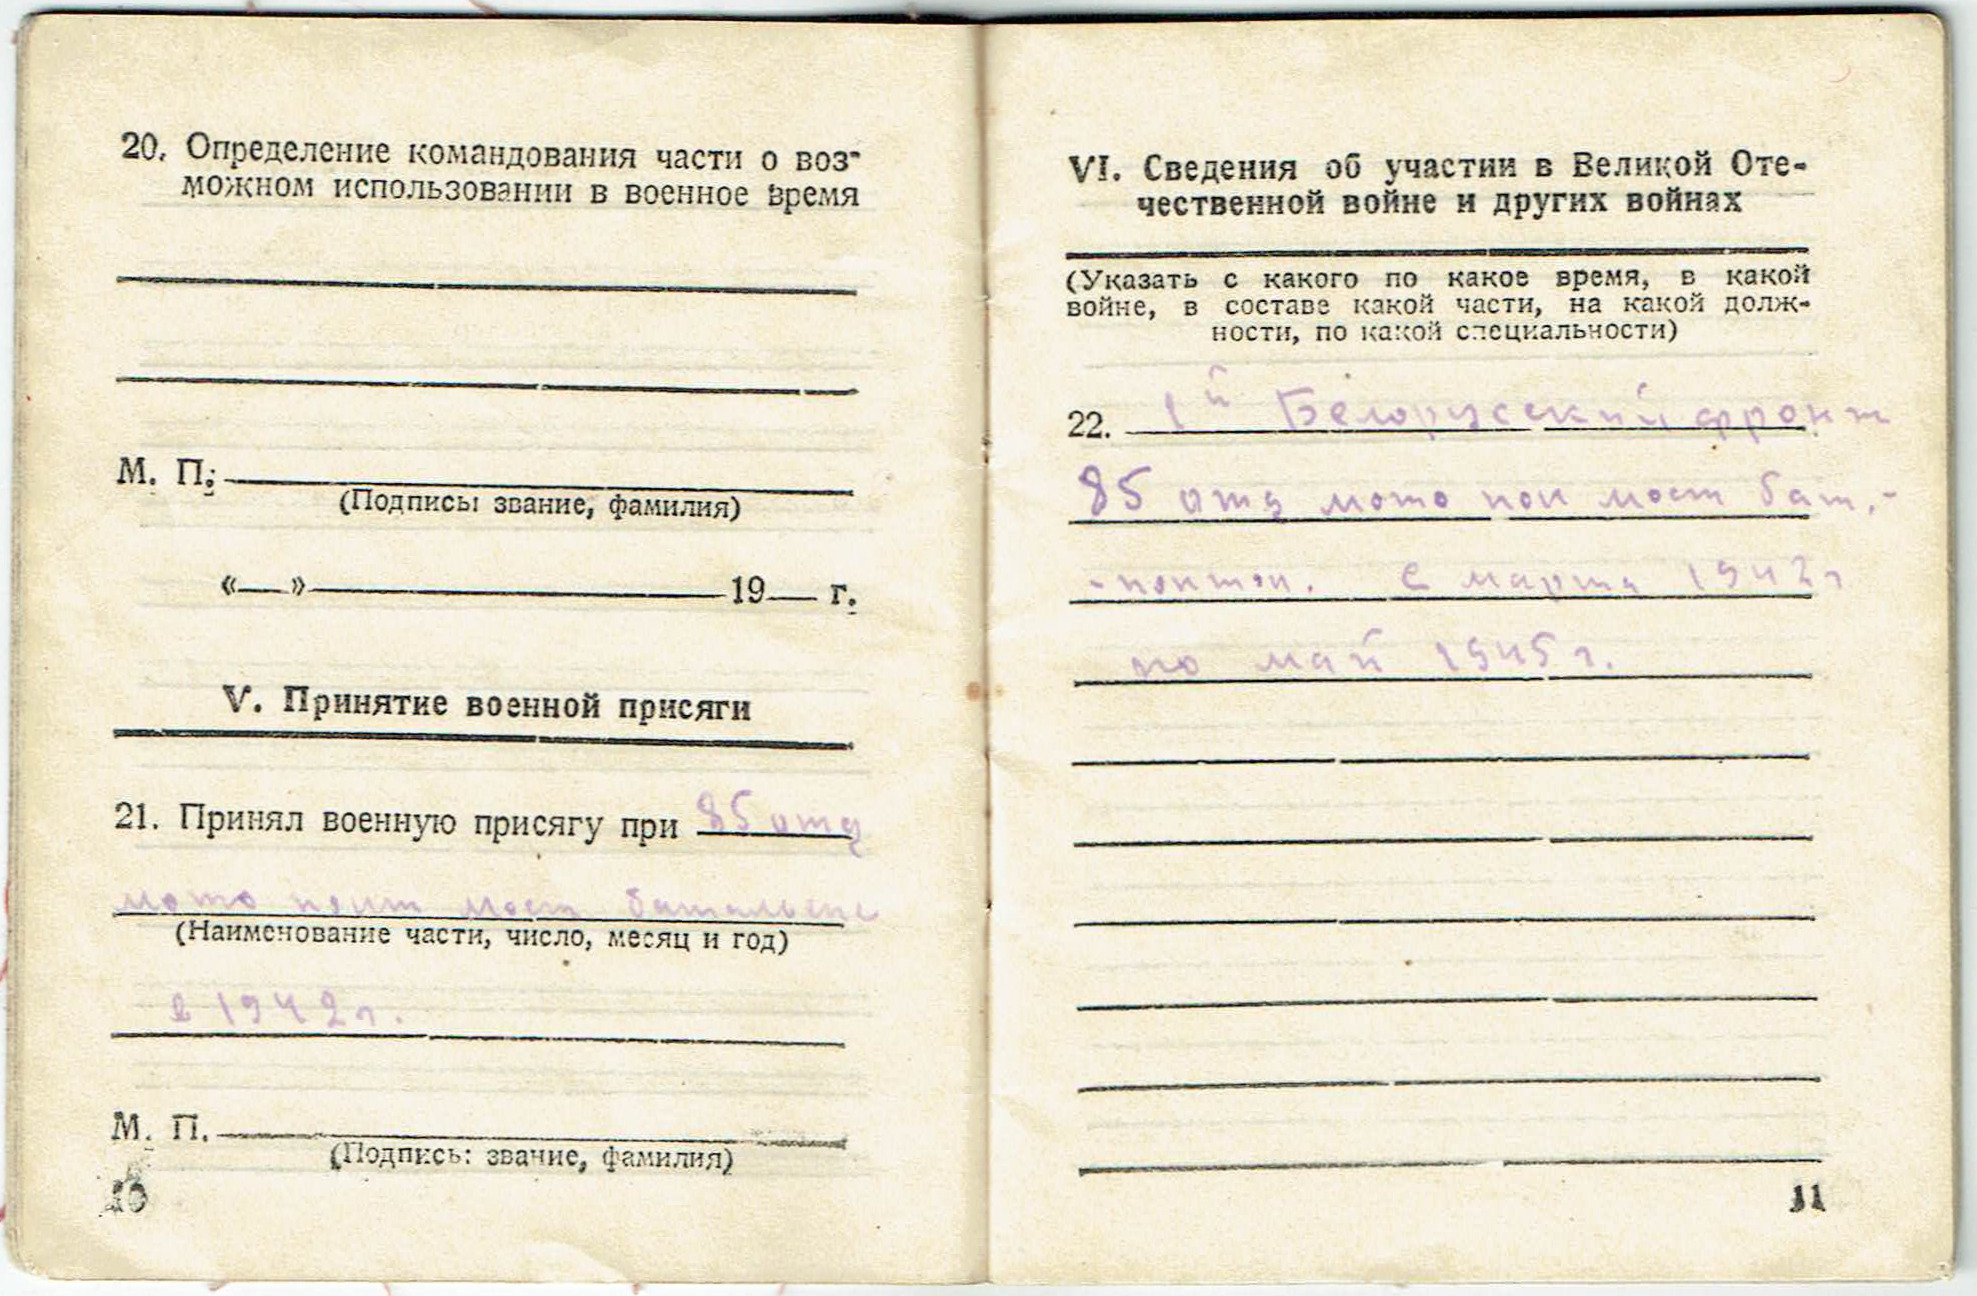 20. Определение командования части о воз-
можном использовании в военное время
М. П.
(Подпись: звание, фамилия)
«—» 19 г.
V. Принятие военной присяги
21. Принял военную присягу при 85 отд
мото понт мост батальоне
(Наименование части, число, месяц и год)
в 1942 г.
М. П.
(Подпись: звание, фамилия)
10
VI. Сведения об участии в Великой Оте-
чественной войне и других войнах
(Указать с какого по какое время, в какой
войне, в составе какой части, на какой долж-
ности, по какой специальности)
22. 1й Белорусский фронт
85 отд мото пон мост бат.-
с марта 1942 г
по май 1945 г.
11